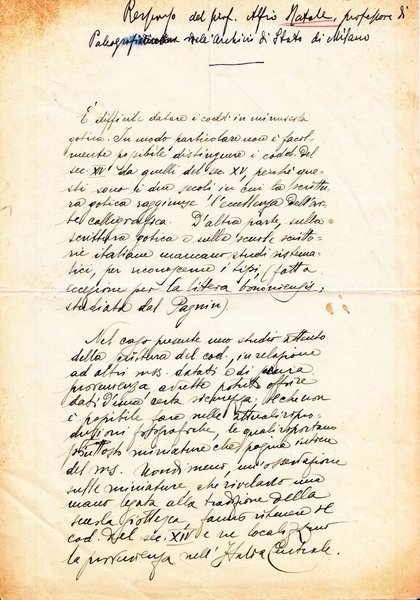 Responso del prof. Alfio Natale, professore di
Paleografia nell'Archivio di Stato di Milano
È difficile datare i codd. in minuscola
gotica. In modo particolare non è facil-
mente possibile distinguere i codd. del
sec. XIV da quelli del sec. XV, perché que-
sti sono li due secoli in cui la scrittu-
ra gotica raggiunge l'eccellenza dell'ar-
te calligrafica. D'altra parte, sulla
scrittura gotica e sulle scuole scritto-
rie italiane mancano studi sistema-
tici, per riconoscerne i tipi, (fatta
eccezione per la littera bononiensis,
studiata dal Pagnin).
Nel caso presente uno studio attento
della scrittura del cod., in relazione
ad altri mss. datati e di sicura
provenienza avrebbe potuto offrire
dati d'una certa sicurezza; il che non
è possibile fare nelle attuali ripro-
duzioni fotografiche, le quali riportano
piuttosto miniature che pagine intere
del ms. Nondimeno, un'osservazione
sulle miniature, che rivelano una
mano legata alla tradizione della
scuola giottesca, fanno ritenere il
cod. del sec. XIV e ne localizzano
la provenienza nell'Italia Centrale.